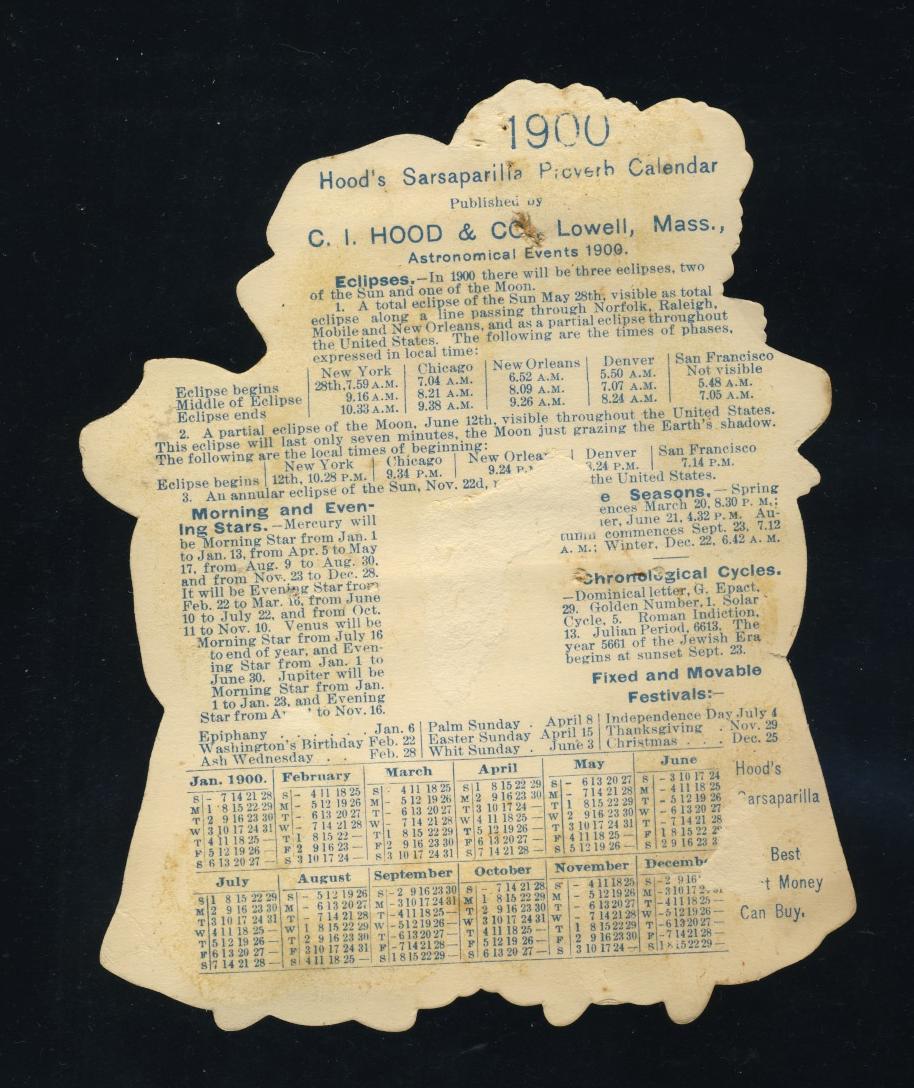 1900
Hood's Sarsaparilla Proverb Calendar
Published by
C. I. HOOD & CO., Lowell, Mass.,
Astronomical Events 1900.
Eclipses.—In 1900 there will be three eclipses, two
of the Sun and one of the Moon.
1. A total eclipse of the Sun May 28th, visible as total
eclipse along a line passing through Norfolk, Raleigh,
Mobile and New Orleans, and as a partial eclipse throughout
the United States. The following are the times of phases,
expressed in local time:
New York Chicago New Orleans Denver San Francisco
Eclipse begins 28th, 7.59 A.M. 7.04 A.M. 6.52 A.M. 5.50 A.M. Not visible
Middle of Eclipse 9.16 A.M. 8.21 A.M. 8.09 A.M. 7.07 A.M. 5.48 A.M.
Eclipse ends 10.33 A.M. 9.38 A.M. 9.26 A.M. 8.24 A.M. 7.05 A.M.
2. A partial eclipse of the Moon, June 12th, visible throughout the United States.
This eclipse will last only seven minutes, the Moon just grazing the Earth's shadow.
The following are the local times of beginning:
New York Chicago New Orlea Denver San Francisco
Eclipse begins 12th, 10.28 P.M. 9.34 P.M. 9.24 P. .24 P.M. 7.14 P.M.
3. An annular eclipse of the Sun, Nov. 22d, the United States.
Morning and Even-
ing Stars.—Mercury will
be Morning Star from Jan. 1
to Jan. 13, from Apr. 5 to May
17, from Aug. 9 to Aug. 30,
and from Nov. 23 to Dec. 28.
It will be Evening Star from
Feb. 22 to Mar. 16, from June
10 to July 22, and from Oct.
11 to Nov. 10. Venus will be
Morning Star from July 16
to end of year, and Even-
ing Star from Jan. 1 to
June 30. Jupiter will be
Morning Star from Jan.
1 to Jan. 23, and Evening
Star from A to Nov. 16.
e Seasons.—Spring
ences March 20, 8.30 P.M.;
er, June 21, 4.32 P.M. Au-
tumn commences Sept. 23, 7.12
A.M.; Winter, Dec. 22, 6.42 A.M.
Chronological Cycles.
—Dominical letter, G. Epact,
29. Golden Number, 1. Solar
Cycle, 5. Roman Indiction,
13. Julian Period, 6613. The
year 5661 of the Jewish Era
begins at sunset Sept. 23.
Fixed and Movable
Festivals:—
Epiphany . . . . Jan. 6 Palm Sunday . April 8 Independence Day July 4
Washington's Birthday Feb. 22 Easter Sunday April 15 Thanksgiving . Nov. 29
Ash Wednesday . . . Feb. 28 Whit Sunday . June 3 Christmas . . . Dec. 25
Jan. 1900. February March April May June
S - 7 14 21 28 S - 4 11 18 25 S - 4 11 18 25 S 1 8 15 22 29 S - 6 13 20 27 S - 3 10 17 24
M 1 8 15 22 29 M - 5 12 19 26 M - 5 12 19 26 M 2 9 16 23 30 M - 7 14 21 28 M - 4 11 18 25
T 2 9 16 23 30 T - 6 13 20 27 T - 6 13 20 27 T 3 10 17 24 - T 1 8 15 22 29 T - 5 12 19 26
W 3 10 17 24 31 W - 7 14 21 28 W - 7 14 21 28 W 4 11 18 25 - W 2 9 16 23 30 W - 6 13 20 27
T 4 11 18 25 - T 1 8 15 22 - T 1 8 15 22 29 T 5 12 19 26 - T 3 10 17 24 31 T - 7 14 21 28
F 5 12 19 26 - F 2 9 16 23 - F 2 9 16 23 30 F 6 13 20 27 - F 4 11 18 25 - F 1 8 15 22
S 6 13 20 27 - S 3 10 17 24 - S 3 10 17 24 31 S 7 14 21 28 - S 5 12 19 26 - S 2 9 16 23
July August September October November Decemb
S 1 8 15 22 29 S - 5 12 19 26 S - 2 9 16 23 30 S - 7 14 21 28 S - 4 11 18 25 S - 2 9 16
M 2 9 16 23 30 M - 6 13 20 27 M - 3 10 17 24 - M 1 8 15 22 29 M - 5 12 19 26 M - 3 10 17
T 3 10 17 24 31 T - 7 14 21 28 T - 4 11 18 25 - T 2 9 16 23 30 T - 6 13 20 27 T - 4 11 18 25 -
W 4 11 18 25 - W 1 8 15 22 29 W - 5 12 19 26 - W 3 10 17 24 31 W - 7 14 21 28 W - 5 12 19 26 -
T 5 12 19 26 - T 2 9 16 23 30 T - 6 13 20 27 - T 4 11 18 25 - T 1 8 15 22 29 T - 6 13 20 27 -
F 6 13 20 27 - F 3 10 17 24 31 F - 7 14 21 28 - F 5 12 19 26 - F 2 9 16 23 30 F - 7 14 21 28 -
S 7 14 21 28 - S 4 11 18 25 - S 1 8 15 22 29 - S 6 13 20 27 - S 3 10 17 24 - S 1 8 15 22 29 -
Hood's
arsaparilla
Best
t Money
Can Buy.